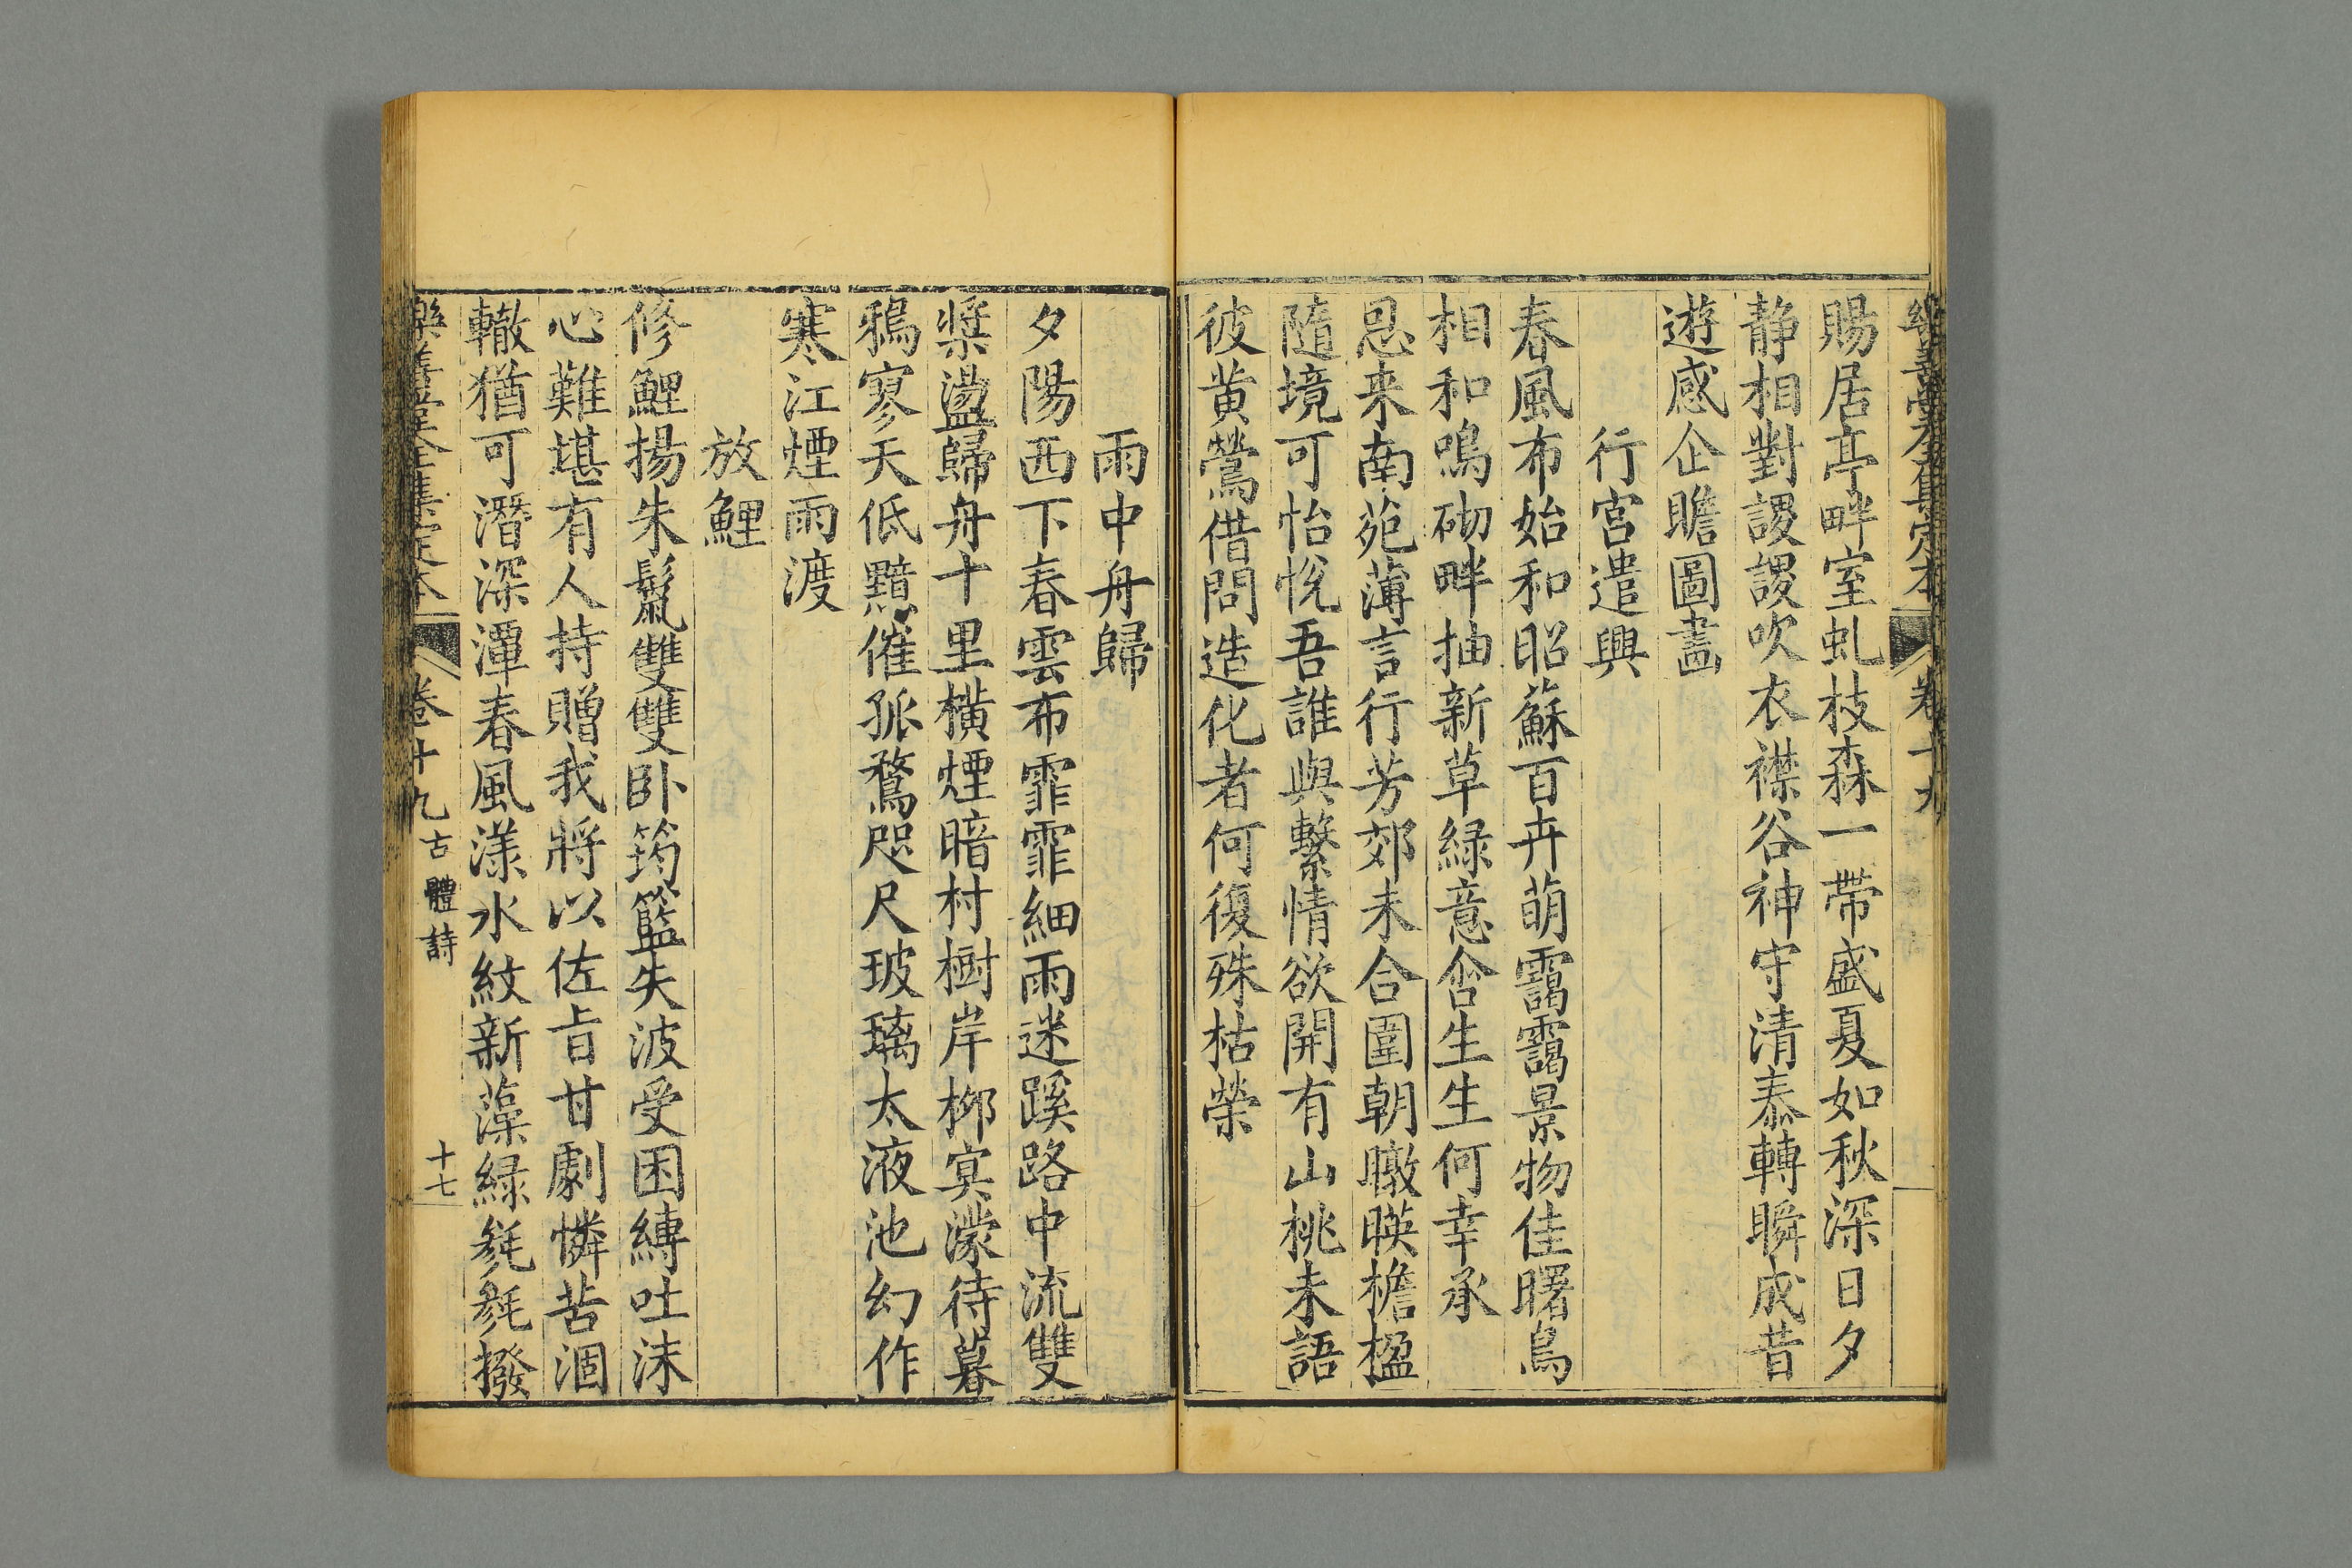 樂善堂全集定本 卷十九
賜居亭畔室虬枝森一帶盛夏如秋深日夕
静相對謖謖吹衣襟谷神守清泰轉瞬成昔
遊感企瞻圖畫
行宮遣興
春風布始和昭蘇百卉萌靄靄景物佳曙鳥
相和鳴砌畔抽新草緑意含生生何幸承
恩来南苑薄言行芳郊未合圍朝暾暎檐楹
隨境可怡悅吾誰與繫情欲開有山桃未語
彼黄鶯借問造化者何復殊枯榮
雨中舟歸
夕陽西下春雲布霏霏細雨迷蹊路中流雙
槳盪歸舟十里橫煙暗村樹岸柳㝠濛待暮
鴉寥天低黯催孤鶩咫尺玻璃太液池幻作
寒江煙雨渡
放鯉
修鯉揚朱鬣雙雙卧筠籃失波受困縛吐沫
心難堪有人持贈我將以佐旨甘劇憐苦涸
轍猶可潛深潭春風漾水紋新藻緑毿毿撥
樂善堂全集定本 卷十九 古體詩 十七